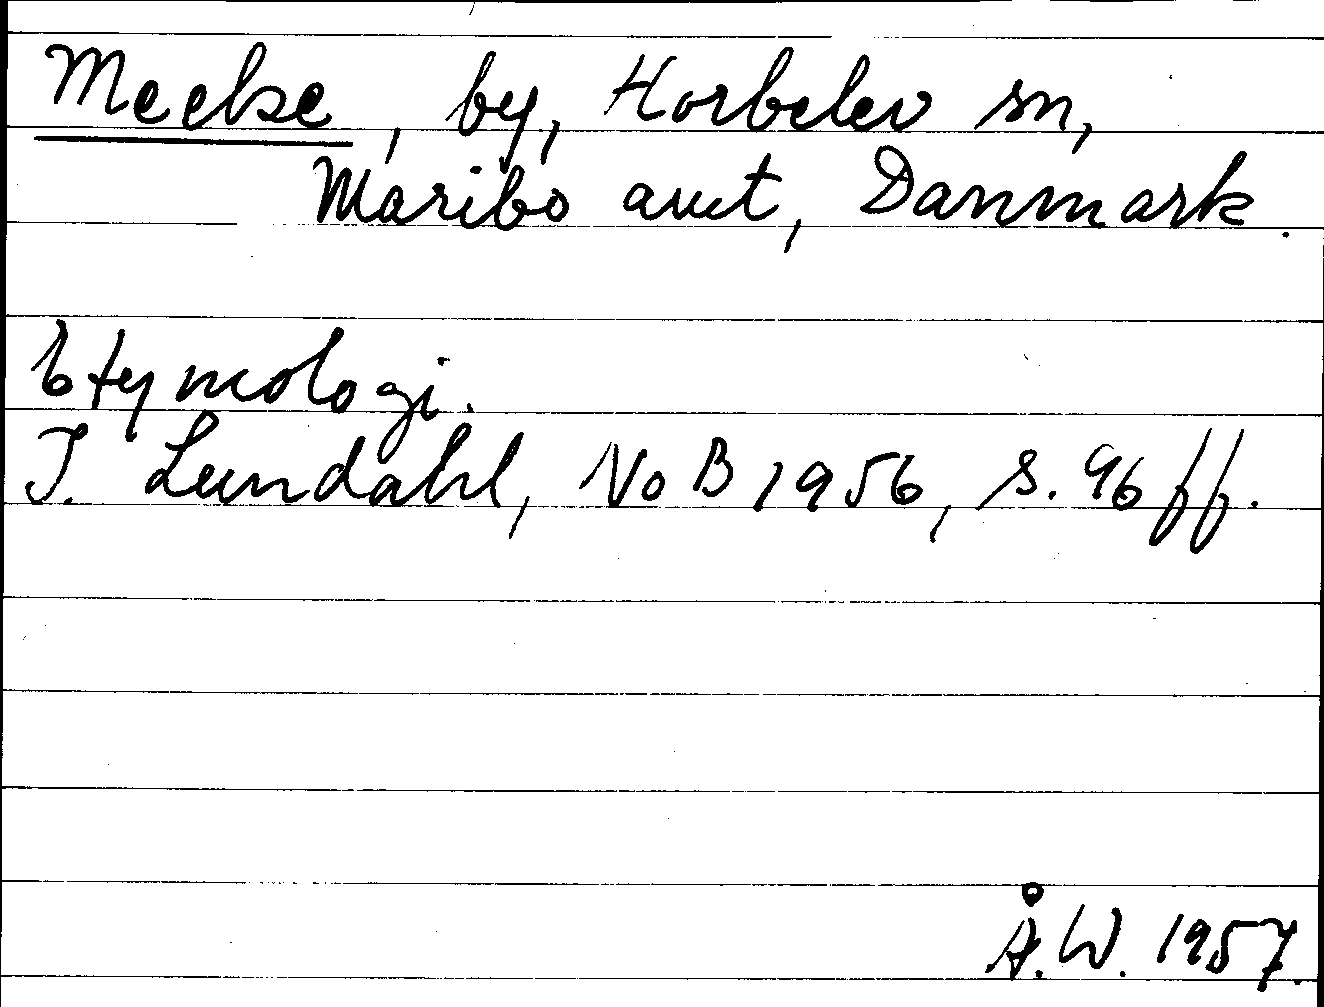 Meelse, by, Horbelev sn,
Maribo amt, Danmark.
Etymologi.
I. Lundahl, NoB 1956, s. 96 ff.
Å.W. 1957.